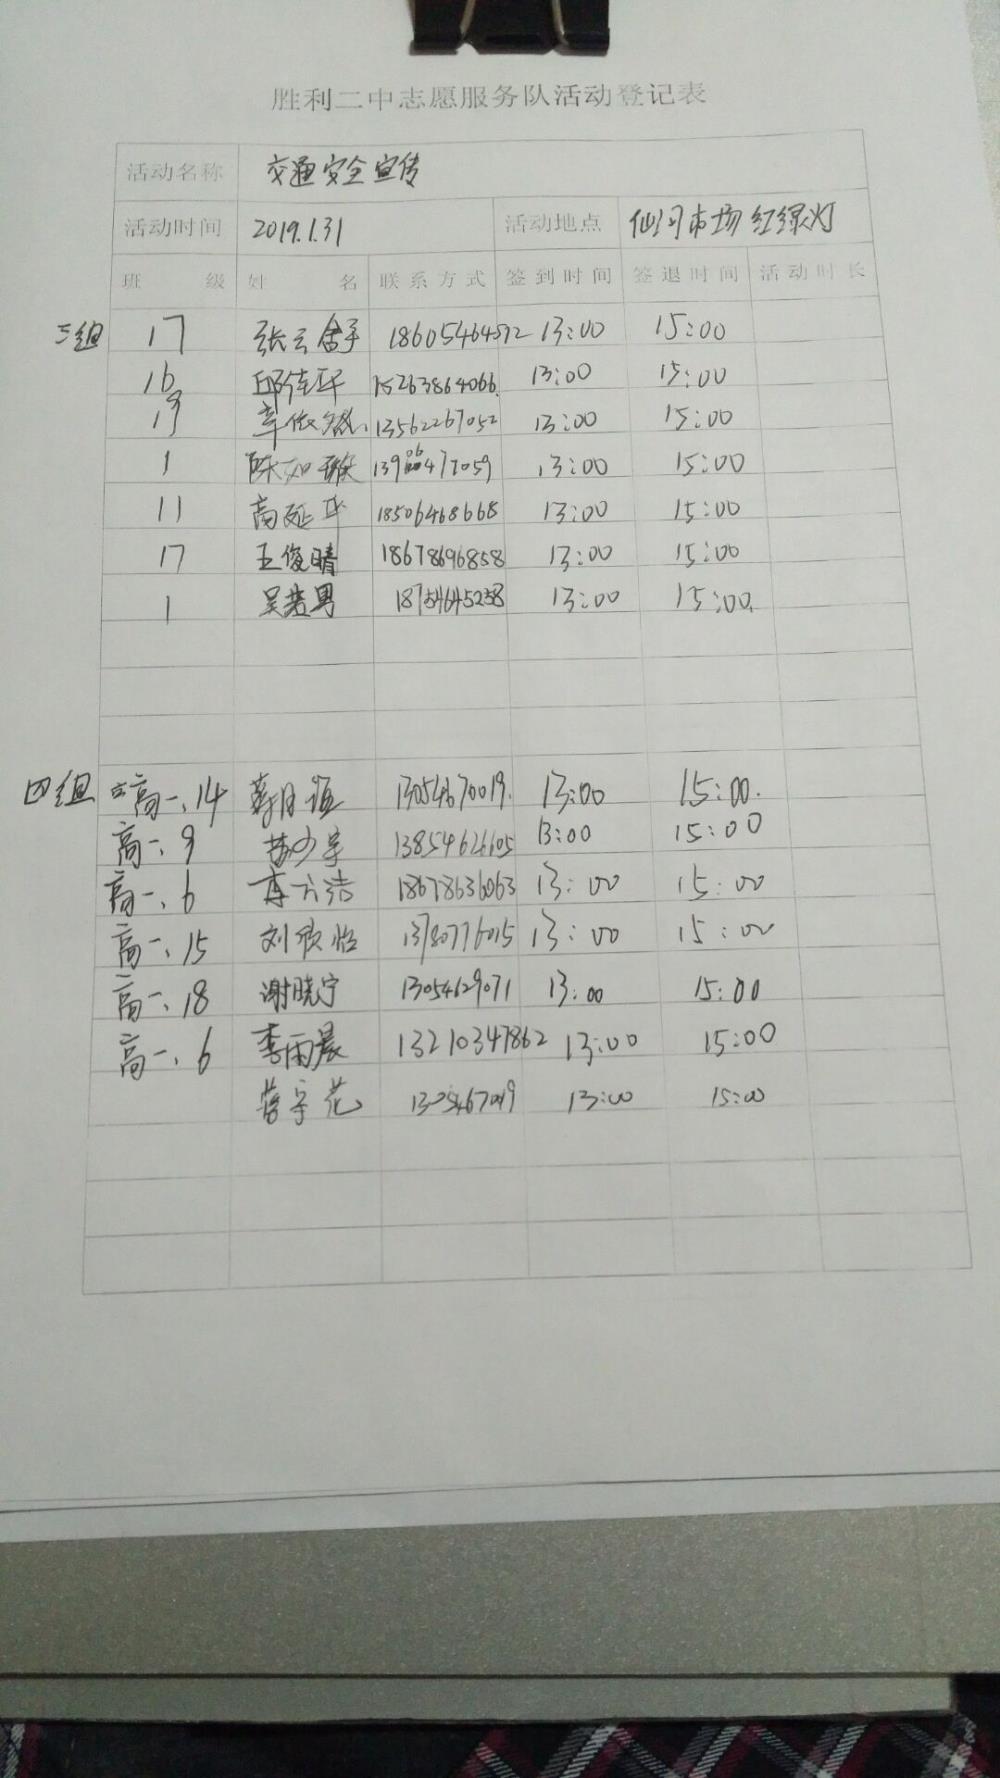 胜利二中志愿服务队活动登记表
活动名称 交通安全宣传
活动时间 2019.1.31 活动地点 仙河市场红绿灯
班级 姓名 联系方式 签到时间 签退时间 活动时长
三组 17 张云舒 18605464572 13:00 15:00
16 邱佳 15263864066 13:00 15:00
19 辛依 13562267052 13:00 15:00
1 陈如 13906477059 13:00 15:00
11 高延平 18506468668 13:00 15:00
17 王俊晴 18678696858 13:00 15:00
1 吴若男 18754645258 13:00 15:00
四组 高一、14 13054670019 13:00 15:00
高一、9 苏少宇 13854626605 13:00 15:00
高一、6 18678636063 13:00 15:00
高一、15 刘欣怡 13780776015 13:00 15:00
高一、18 谢晓宁 13054629071 13:00 15:00
高一、6 李雨晨 13210347862 13:00 15:00
13:00 15:00